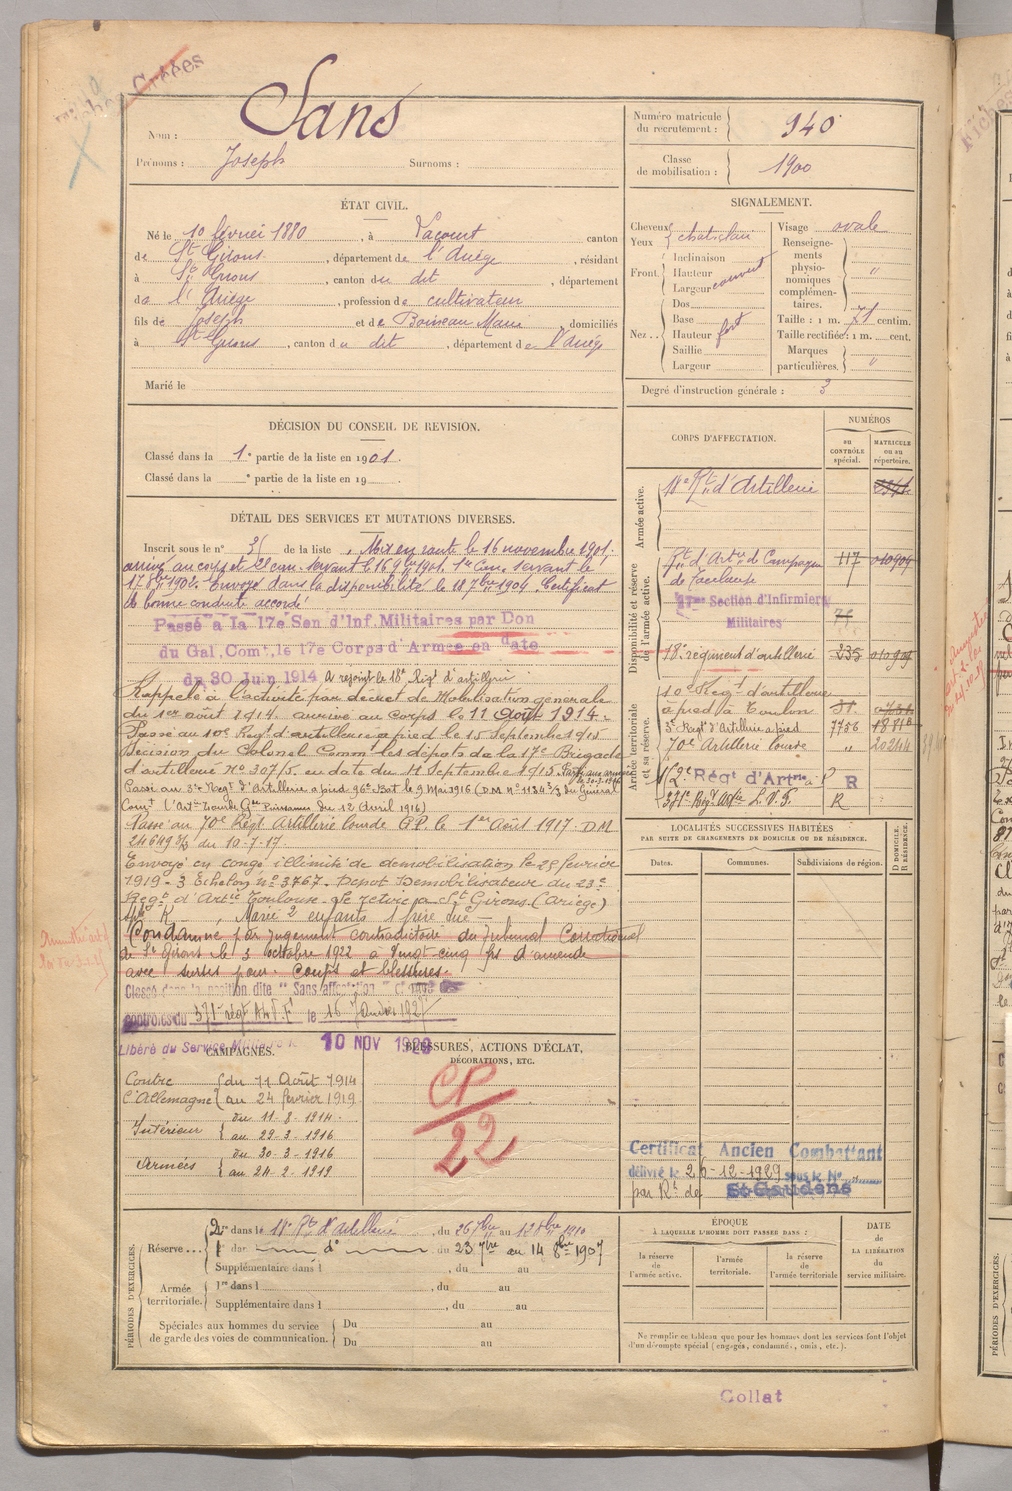 Fiches Créées
Nom : Sans
Prénoms : Joseph Surnoms :
Numéro matricule du recrutement : 940
Classe de mobilisation : 1900
ÉTAT CIVIL.
Né le 10 février 1880, à Lacourt canton
de St Girons, département de l'Ariège, résidant
à St Girons, canton du dit, département
de l'Ariège, profession de cultivateur
fils de Joseph et de Boineau Marie domiciliés
à St Girons, canton du dit, département de l'Ariège
Marié le
SIGNALEMENT.
Cheveux
Yeux châtclair
Front. Inclinaison
Hauteur
Largeur couvert
Nez... Dos
Base
Hauteur fort
Saillie
Largeur
Visage ovale
Renseignements physionomiques complémentaires. "
Taille : 1 m. 71 centim.
Taille rectifiée : 1 m. cent.
Marques particulières. "
Degré d'instruction générale : 3
DÉCISION DU CONSEIL DE REVISION.
Classé dans la 1e partie de la liste en 1901.
Classé dans la e partie de la liste en 19
DÉTAIL DES SERVICES ET MUTATIONS DIVERSES.
Inscrit sous le n° 36 de la liste, Mix en route le 16 novembre 1901.
arrivé au corps et 2e can. servant le 16 9bre 1901. 1er Can. servant le
17 8bre 1902. Envoyé dans la disponibilité le 18 7bre 1904. Certificat
de bonne conduite accordé
Passé a la 17e Son d'Inf. Militaires par Don
du Gal. Comt. le 17e Corps d'Armée en date
du 30 Juin 1914 A rejoint le 18e Régt d'artillerie
Rappelé à l'activité par décret de Mobilisation générale
du 1er août 1914. arrivé au Corps le 11 Août 1914.
Passé au 10e Régt d'artillerie à pied le 15 Septembre 1915
Décision du Colonel Commt les dépots de la 17e Brigade
d'artillerie N° 307/5. en date du 11 Septembre 1915. Parti aux armées le 30-3-1916
Passé au 3e Régt d'Artillerie à pied 96e Bat. le 9 Mai 1916 (D.M. N° 1134 3/3 du Général
Comt l'Artie Lourde Gde Puissance du 12 Avril 1916)
Passé au 70e Régt. Artillerie lourde G.P. le 1er Août 1917. D.M
24649 3/3 du 10-7-17
Envoyé en congé illimité de démobilisation le 25 février
1919 - 3 Échelon n° 3767. Dépôt Démobilisateur du 23e
Régt d'Artie Toulouse. Se retire à St Girons (Ariège)
Marié 2 enfants 1 frère tué
Condamné par jugement contradictoire du Tribunal Correctionel
de St Girons le 3 octobre 1922 à vingt-cinq frs d'amende
avec sursis pour. Coups et blessures.
Classé dans la position dite "Sans affectation"
controles du 371e régt le 16 Janvier 1927
Libéré du Service Militaire le 10 NOV 1928
CORPS D'AFFECTATION.
NUMÉROS
au CONTRÔLE spécial.
MATRICULE ou au répertoire.
Armée active.
18e Rt d'Artillerie
Disponibilité et réserve de l'armée active.
Rt d'Artie de Campagne 117 010904
de Toulouse
17me Section d'Infirmiers
Militaires
18e régiment d'artillerie 235 010904
Armée territoriale et sa réserve.
10e Régt d'artillerie
à pied à Toulon
3e Régt d'Artillerie à pied 7756
70e Artillerie lourde " 20244
Régt d'Artrie à P R
371e Régt Artie L.V.F. R
LOCALITÉS SUCCESSIVES HABITÉES
PAR SUITE DE CHANGEMENTS DE DOMICILE OU DE RÉSIDENCE.
Dates. Communes. Subdivisions de région. D DOMICILE. R RÉSIDENCE.
CAMPAGNES.
Contre l'Allemagne du 11 Août 1914
au 24 février 1919
Intérieur du 11-8-1914
au 29-3-1916
Armées du 30-3-1916
au 24-2-1919
BLESSURES, ACTIONS D'ÉCLAT,
DÉCORATIONS, ETC.
CP/22
Certificat Ancien Combattant
délivré le 26-12-1929 sous le N°
par Rt de St Gaudens
PÉRIODES D'EXERCICES.
Réserve... 2e dans le 18e Rt d'artillerie, du 26 7bre au 12 8bre 1910
1e dans d° du 23 7bre au 14 8bre 1907
Supplémentaire dans l , du au
Armée territoriale. 1re dans l , du au
Supplémentaire dans l , du au
Spéciales aux hommes du service de garde des voies de communication. Du au
Du au
ÉPOQUE
À LAQUELLE L'HOMME DOIT PASSER DANS :
la réserve de l'armée active.
l'armée territoriale.
la réserve de l'armée territoriale
DATE de LA LIBÉRATION du service militaire.
Ne remplir ce tableau que pour les hommes dont les services font l'objet
d'un décompte spécial (engagés, condamné, omis, etc.).
Collat